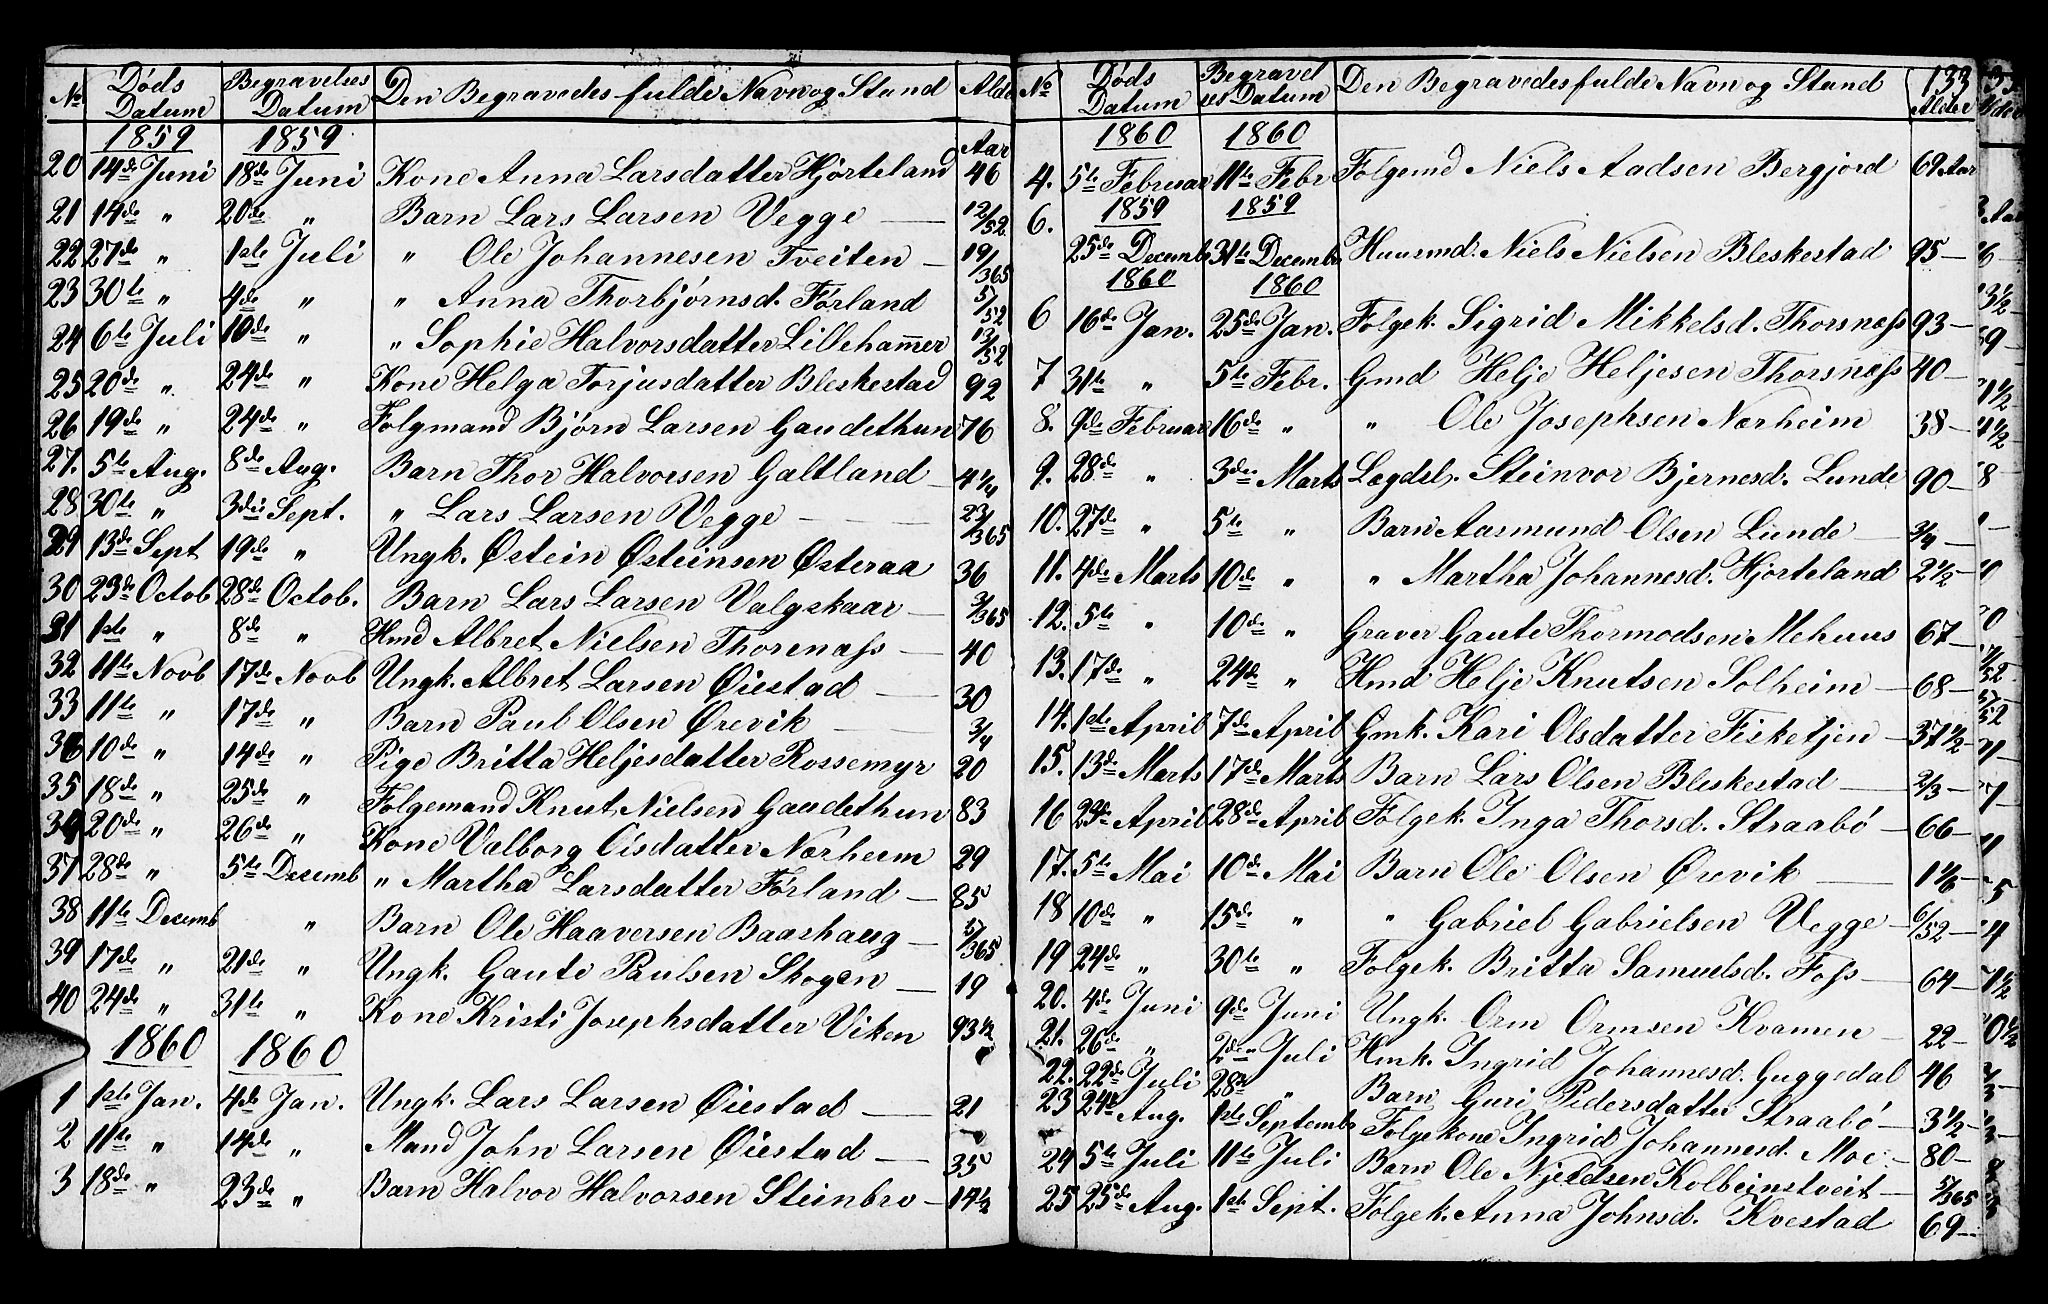 No Døds Datum Begravelses Datum Den Begravedes fulde Navn og Stand Alder
1859 1859 Aar
20 14de Juni 18de Juni Kone Anna Larsdatter Hjorteland 46
21 14de " 20de " Barn Lars Larsen Vegge — 12/52
22 27de " 1ste Juli " Ole Johannesen Tveiten — 19/365
23 30te " 4de " " Anna Thorbjørnsd. Førland 5/52
24 6te Juli 10de " " Sophie Halvorsdatter Lillehammer 13/52
25 20de " 24de " Kone Helga Torjusdatter Bleskestad 92
26 19de " 24de " Folgmand Bjørn Larsen Gaudethun 76
27. 5te Aug. 8de Aug. Barn Thor Halvorsen Galtland — 4 1/4
28 30te " 3die Sept. " Lars Larsen Vegge — 23/365
29 13de Sept 19de " Ungk. Østein Østeinsen Østeraa 36
30 23de Octob 28de Octob. Barn Lars Larsen Valgskaar — 3/365
31 1ste " 8de " Hmd Albret Nielsen Thorsnass — 40
32 11te Novb 17de Novb Ungk. Albret Larsen Øiestad — 30
33 11te " 17de " Barn Paul Olsen Ørevik — 3/4
10de " 14de " Pige Britta Heljesdatter Rossemyr 20
35 18de " 25de " Folgemand Knut Nielsen Gaudethun 83
20de " 26de " Kone Valborg Olsdatter Nærheim 29
37 28de " 5te Decemb " Martha Larsdatter Førland — 85
38 11te Decemb " Barn Ole Haaversen Baarhaug — 5/365
39 17de " 21de " Ungk. Gaute Paulsen Skogen — 19
40 24de " 31te " Kone Kristi Josephsdatter Viken 93 1/2
1860 1860
1 1ste Jan. 4de Jan. Ungk. Lars Larsen Øiestad — 21
2 11te " 14de " Mand John Larsen Øiestad — 35
3 18de " 23de " Barn Halvor Halvorsen Steinbro — 14 1/2
133
No Døds Datum Begravelses Datum Den Begravedes fulde Navn og Stand Alder
1860 1860
4. 5te Februar 11te Febr Folgemd Niels Aadsen Bergjord 69 Aar
1859 1859
6. 25de Decembr 31te Decembr Huusmd. Niels Nielsen Bleskestad 95 —
1860 1860
6 16de Jan. 25de Jan. Folgek. Sigrid Mikkelsd. Thorsnæss 93 —
7 31te " 5te Febr. Gmd Helje Heljesen Thorsnæss 40 —
8. 9de Februar 16de " " Ole Josephsen Nærheim 38 —
9. 28de " 3die Marts Lægdsl. Steinvor Bjernesd. Lunde 90 —
10. 27de " 5te " Barn Aasmund Olsen Lunde — 3/4 —
11. 4de Marts 10de " " Martha Johannesd. Hjorteland 2 1/2 —
12. 5te " 10de " Graver Gaute Thormodsen Mehuus 67 —
13. 17de " 24de " Hmd Helje Knutsen Solheim — 68 —
14. 1ste April 7de April Gmk. Kari Olsdatter Fisketjen — 37 1/2 —
15. 13de Marts 17de Marts Barn Lars Olsen Bleskestad — 2/3 —
16 23de April 28de April Folgek. Inga Thorsd. Straabø — 66 —
17. 5te Mai 10de Mai Barn Ole Olsen Ørevik — 1 1/6 —
18 10de " 15de " " Gabriel Gabrielsen Vegge — 6/52 —
19 24de " 30te " Folgek. Britta Samuelsd. Foss — 64 —
20. 4de Juni 9de Juni Ungk. Orm Ormsen Kvamen — 22 —
21. 26de " 2den Juli Hmk. Ingrid Johannesd. Guggedal 46
22. 22de Juli 28de " Barn Guri Pedersdatter Straabø — 3 1/2 —
23 24de Aug. 1ste Septembr Folgekone Ingrid Johannesd. Moe — 80 —
24 5te Juli 11te Juli Barn Ole Njeldsen Kolbeinstveit — 5/365
25 25de Aug. 1ste Sept. Folgek. Anna Johnsd. Kvestad 69 —